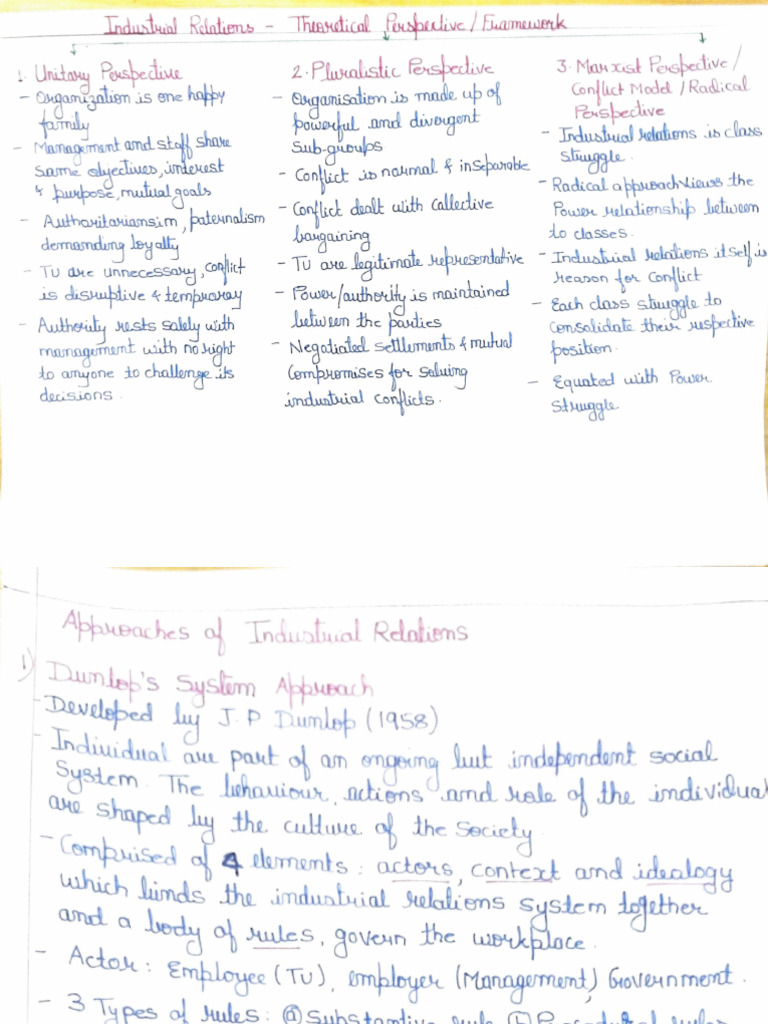 Industrial Relations - Theoretical Perspective/Framework
1. Unitary Perspective
- Organization is one happy
family
- Management and staff share
same objectives, interest
& purpose, mutual goals
- Authoritariansim, paternalism
demanding loyalty
- TU are unnecessary, conflict
is disruptive & temprary
- Authority rests solely with
management with no right
to anyone to challenge its
decisions.
2. Pluralistic Perspective
- Organisation is made up of
powerful and divergent
sub-groups
- Conflict is normal & inseparable
- Conflict dealt with callective
bargaining
- TU are legitimate representative
- Power/authority is maintained
between the parties
- Negotiated settlements & mutual
compromises for solving
industrial conflicts.
3. Marxist Perspective/
Conflict Model/Radical
Perspective
- Industrial relations is class
struggle.
- Radical approach views the
Power relationship between
to classes.
- Industrial relations itself is
reason for conflict
- Each class struggle to
consolidate their respective
position.
- Equated with Power
struggle
Approaches of Industrial Relations
1) Dunlop's System Approach
- Developed by J.P Dunlop (1958)
- Individual are part of an ongoing but independent social
System. The behaviour, actions and role of the individual
are shaped by the culture of the Society
- Comprised of 4 elements: actors, context and idealogy
which binds the industrial relations system together
and a body of rules, govern the workplace.
- Actor: Employee (TU), employer (Management) Government.
- 3 Types of rules: (a) Substantive rule (b) Procedural rules